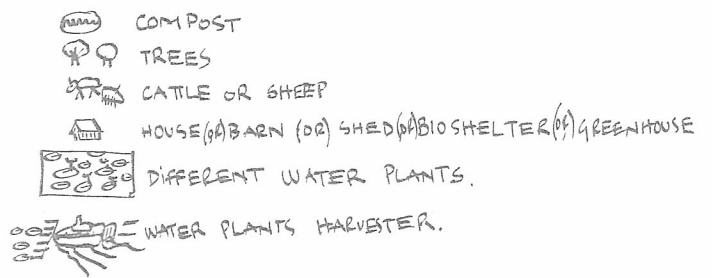 COMPOST
TREES
CATTLE OR SHEEP
HOUSE (OR) BARN (OR) SHED (OR) BIOSHELTER (OR) GREENHOUSE
DIFFERENT WATER PLANTS.
WATER PLANTS HARVESTER.